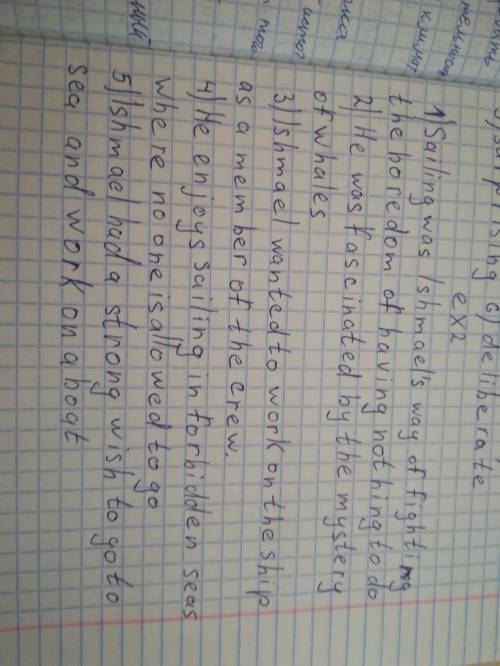 6) deliberate
ex2
1) Sailing was Ishmael's way of fighting
the boredom of having nothing to do
2) He was fascinated by the mystery
of whales
3) Ishmael wanted to work on the ship
as a member of the crew.
4) He enjoys sailing in forbidden seas
where no one is allowed to go
5) Ishmael had a strong wish to go to
sea and work on a boat